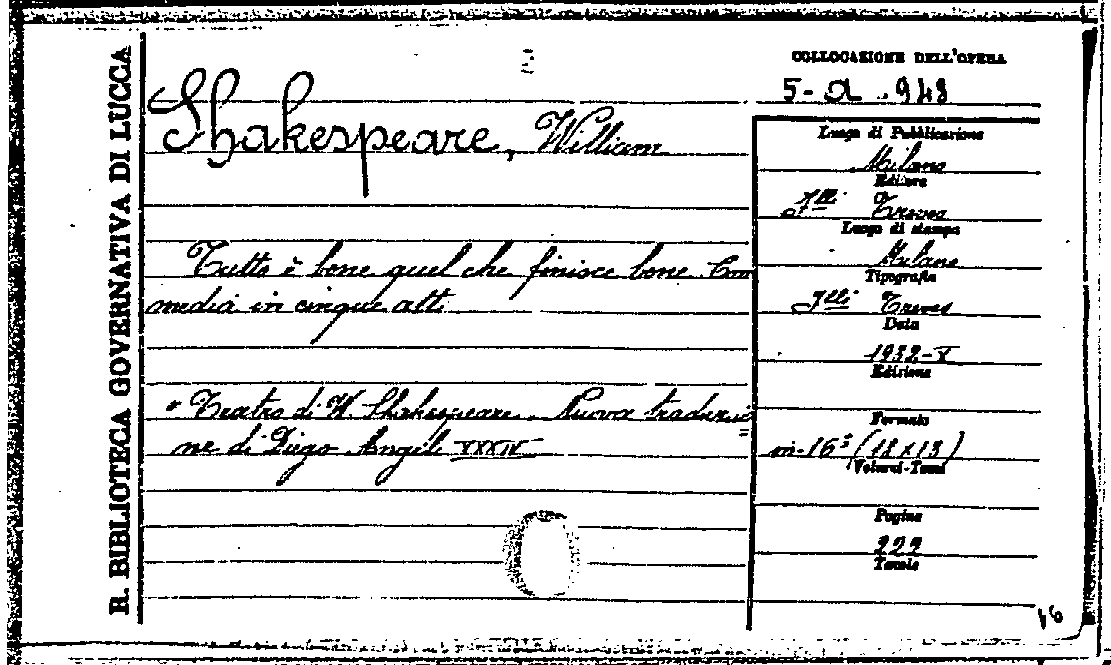 R. BIBLIOTECA GOVERNATIVA DI LUCCA
Shakespeare, William
Tutto è bene quel che finisce bene. Com
media in cinque atti.
" Teatro di W. Shakespeare. Nuova traduzio
ne di Diego Angeli XXXIV
COLLOCAZIONE DELL'OPERA
5-a.948
Luogo di Pubblicazione
Milano
Editore
F.lli Treves
Luogo di stampa
Milano
Tipografia
F.lli Treves
Data
1932-X
Edizione
Formato
in-16° (18x13)
Volumi-Tomi
Pagine
222
Tavole
16